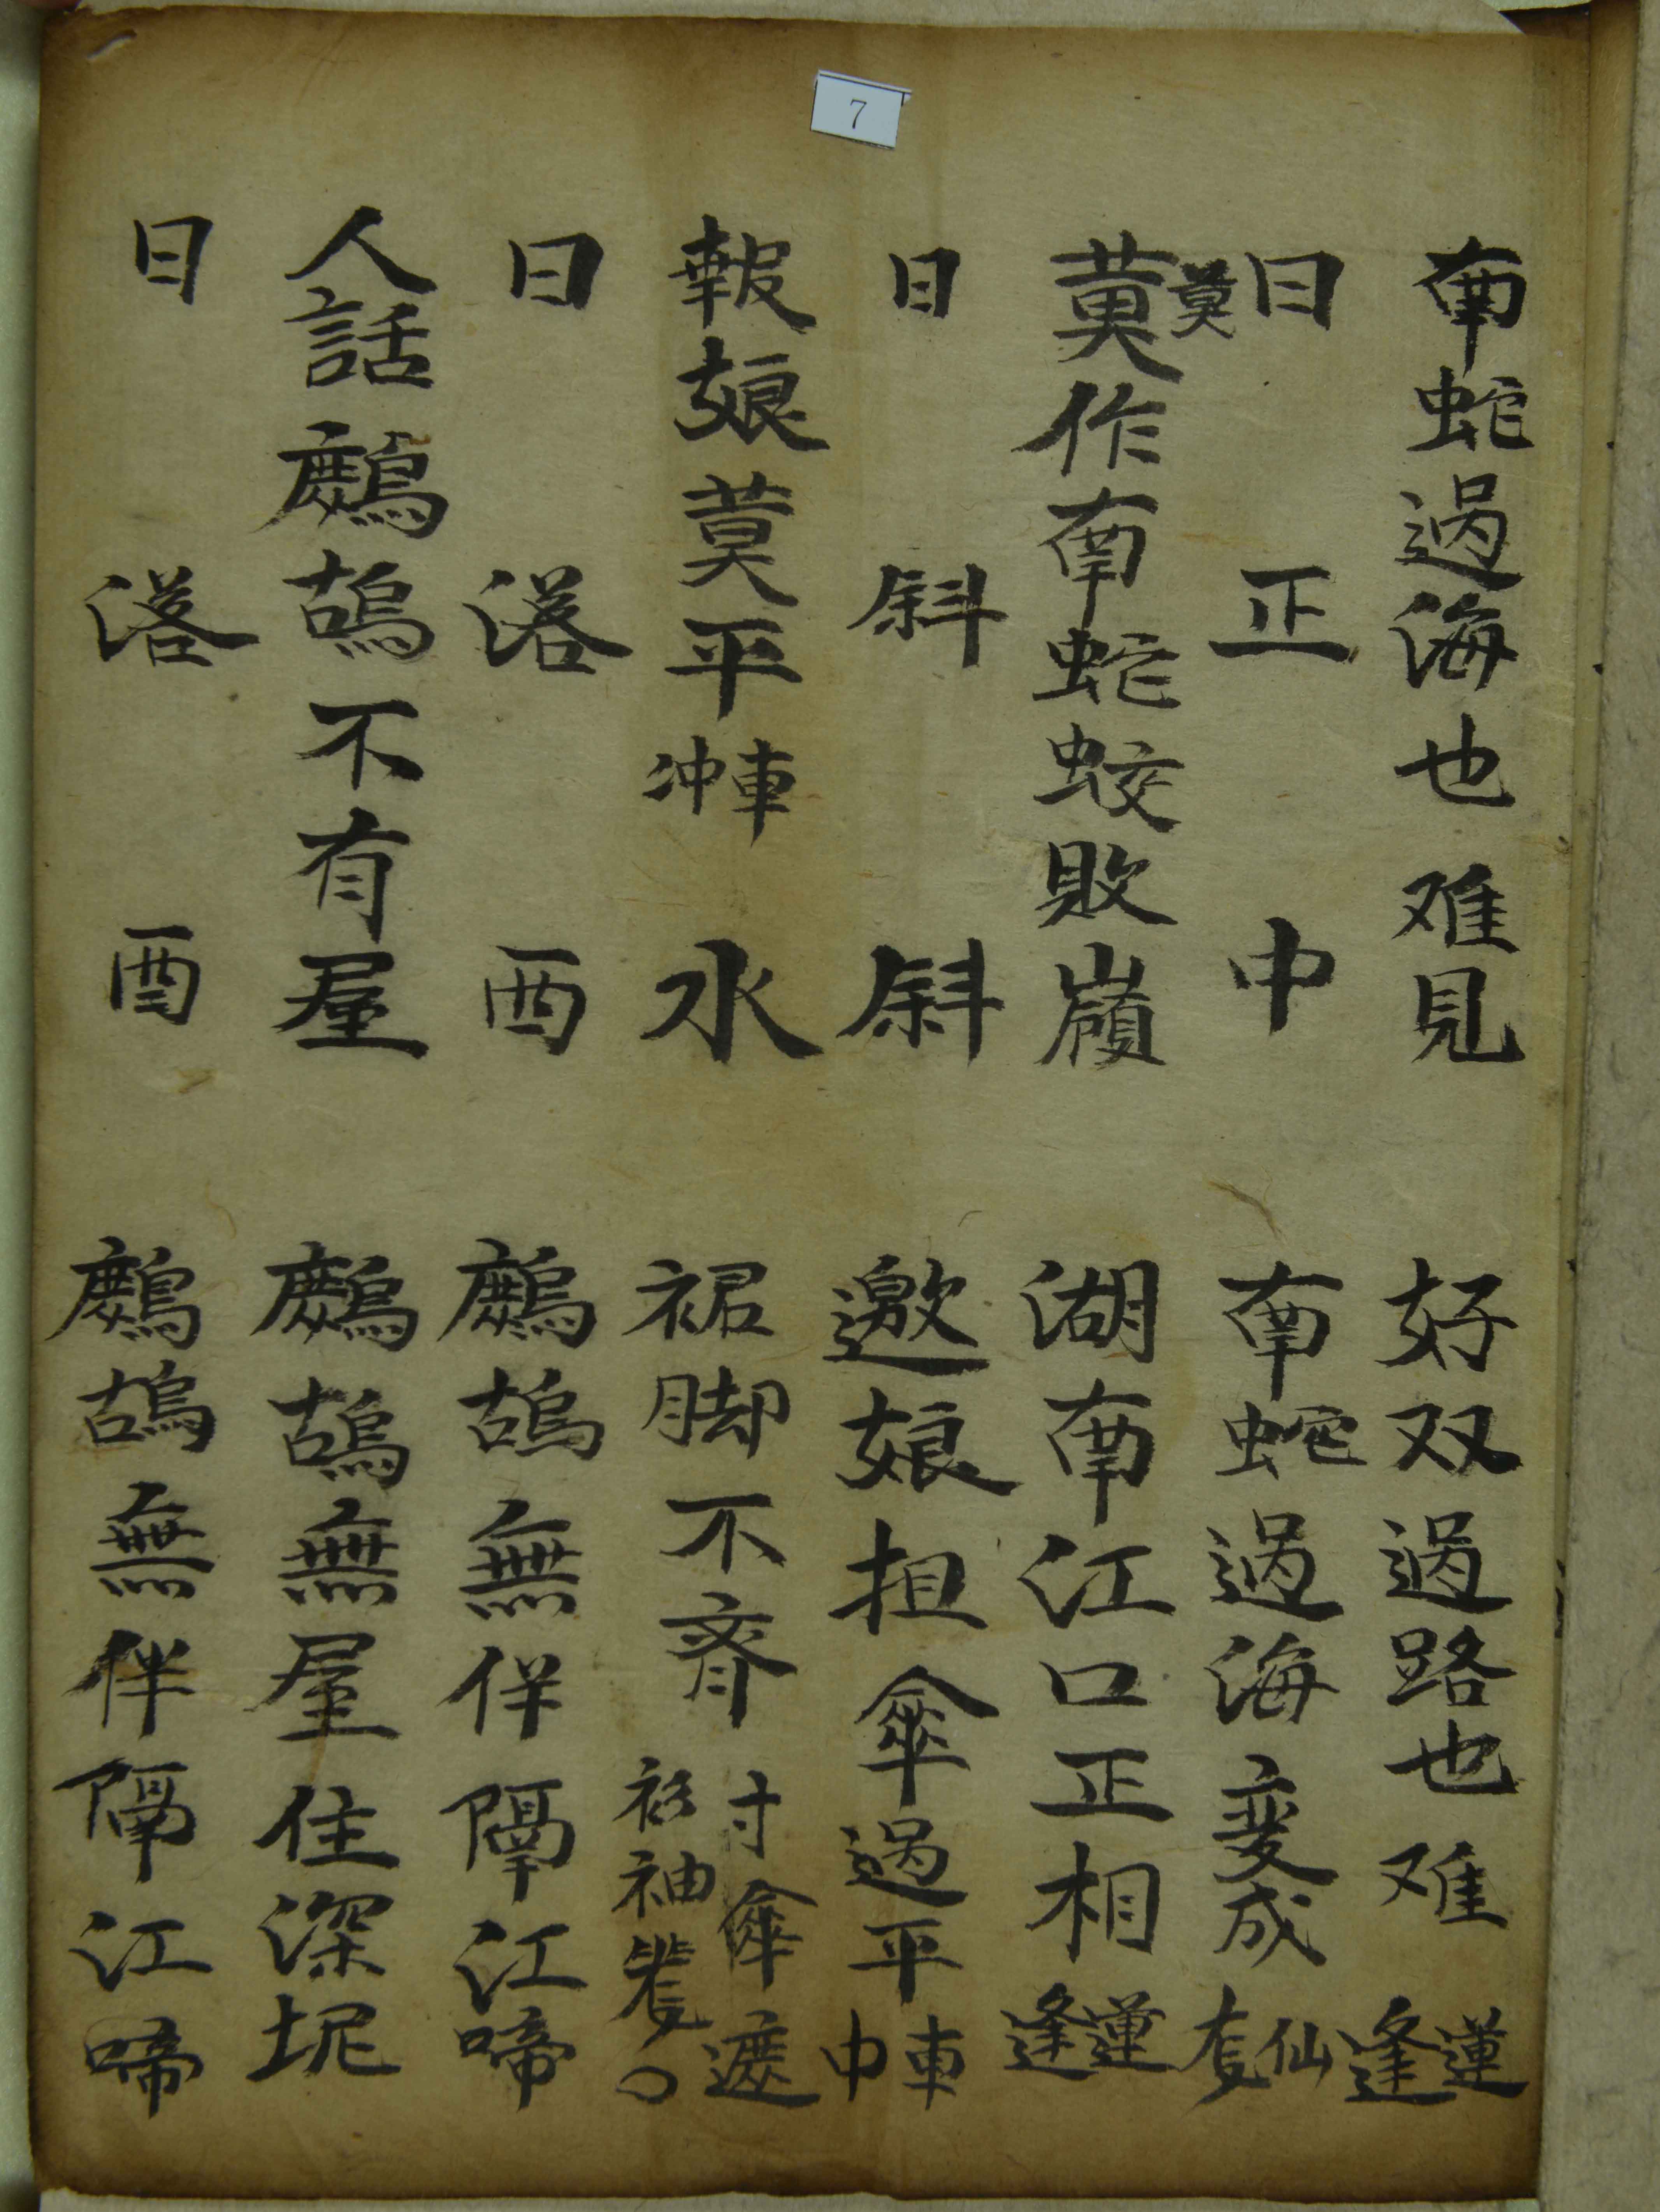 7
南蛇過海也难見
好双過路也难蓮逢
日正中
南蛇過海变成仙
莫
莫作南蛇蛟敗嶺
湖南江口正相蓮逢
日斜斜
邀娘担傘過平車中
報娘莫平車冲水
裙脚不齐寸傘遮衫袖
日落酉
鷓鴣無伴隔江啼
人話鷓鴣不有屋
鷓鴣無屋住深坭
日落酉
鷓鴣無伴隔江啼